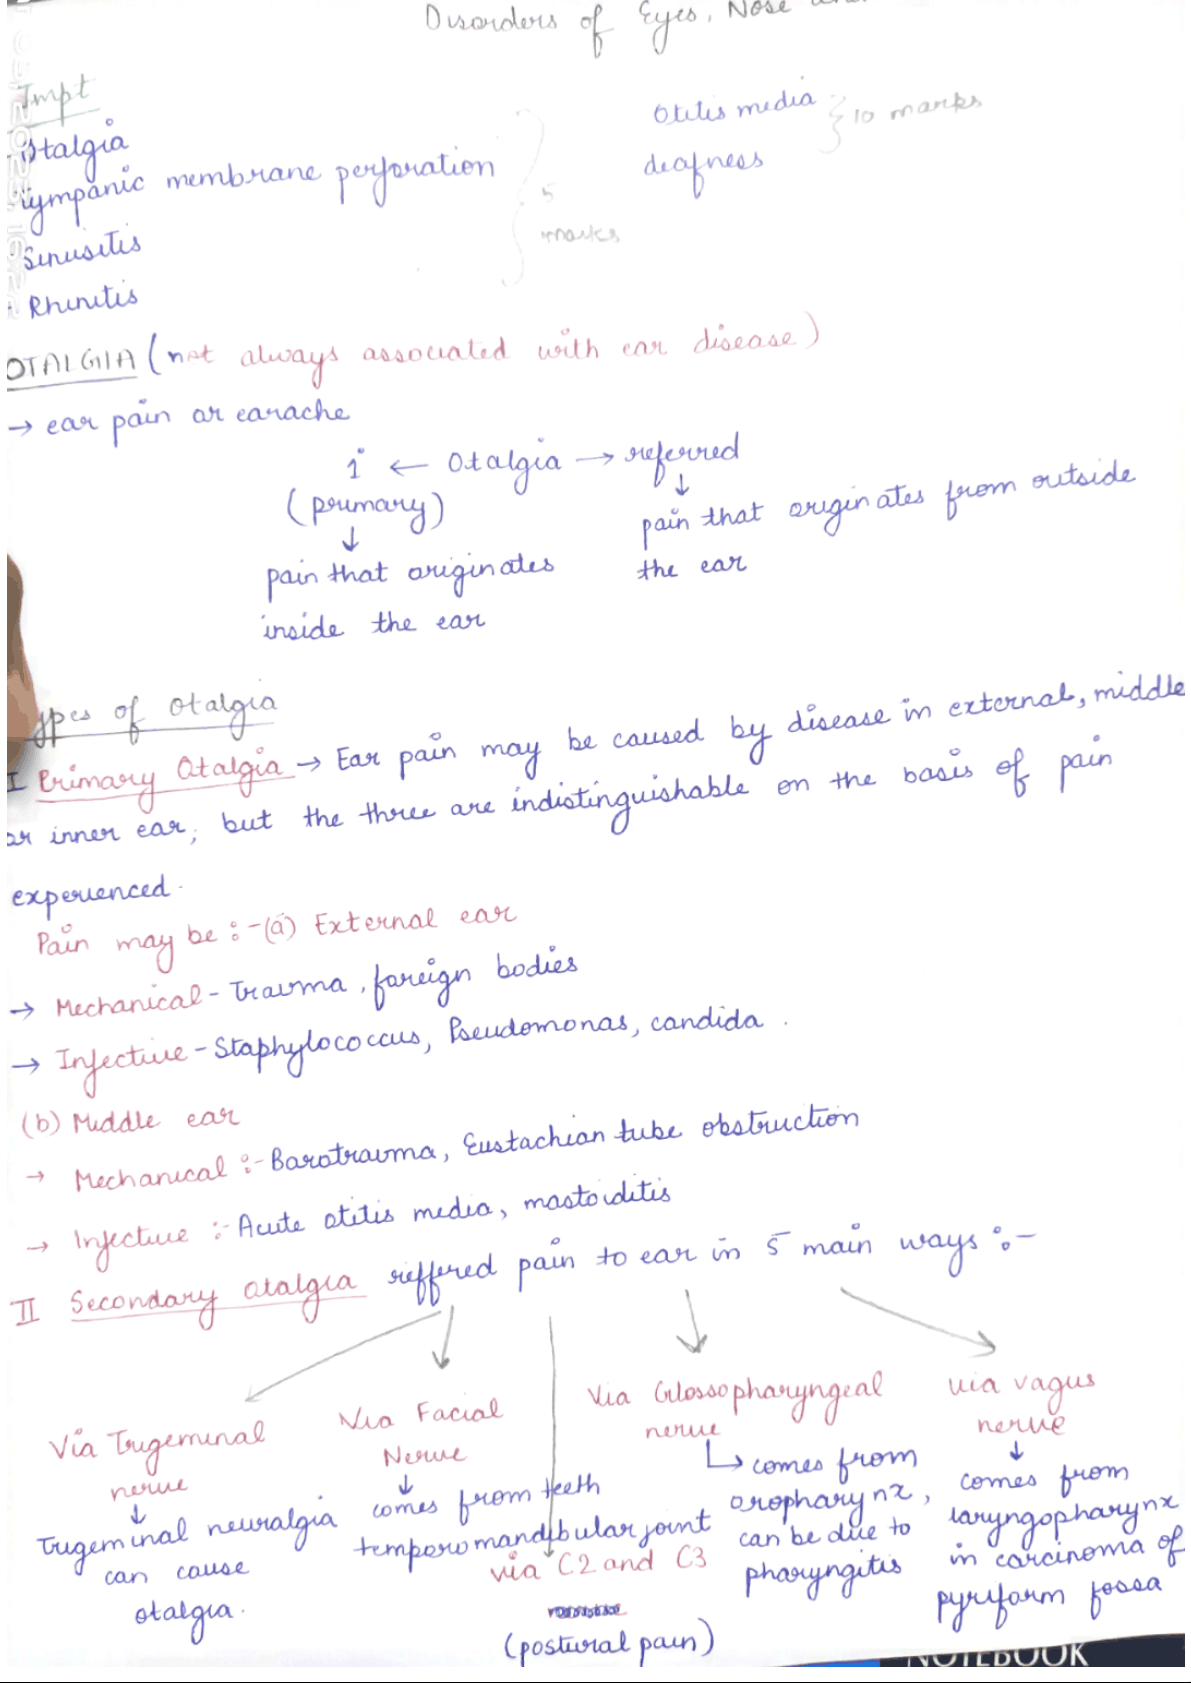 Disorders of Eyes, Nose
Impt
Otalgia
Tympanic membrane perforation
Sinusitis
Rhinitis
5
marks
Otitis media
deafness
10 marks
OTALGIA (not always associated with ear disease)
→ ear pain or earache
1° ← Otalgia → referred
(primary)
↓
pain that originates
inside the ear
↓
pain that originates from outside
the ear
ypes of otalgia
I Primary Otalgia → Ear pain may be caused by disease in external, middle
or inner ear, but the three are indistinguishable on the basis of pain
experienced.
Pain may be :- (a) External ear
→ Mechanical - Trauma, foreign bodies
→ Infective - Staphylococcus, Pseudomonas, candida.
(b) Middle ear
→ Mechanical :- Barotrauma, Eustachian tube obstruction
→ Infective :- Acute otitis media, mastoiditis
II Secondary otalgia reffered pain to ear in 5 main ways :-
Via Trigeminal
nerve
↓
Trigeminal neuralgia
can cause
otalgia.
Via Facial
Nerve
↓
comes from teeth
temperomandibular joint
via C2 and C3
(postural pain)
Via Glossopharyngeal
nerve
↳ comes from
oropharynx,
can be due to
pharyngitis
via vagus
nerve
↓
comes from
laryngopharynx
in carcinoma of
pyriform fossa
NOTEBOOK